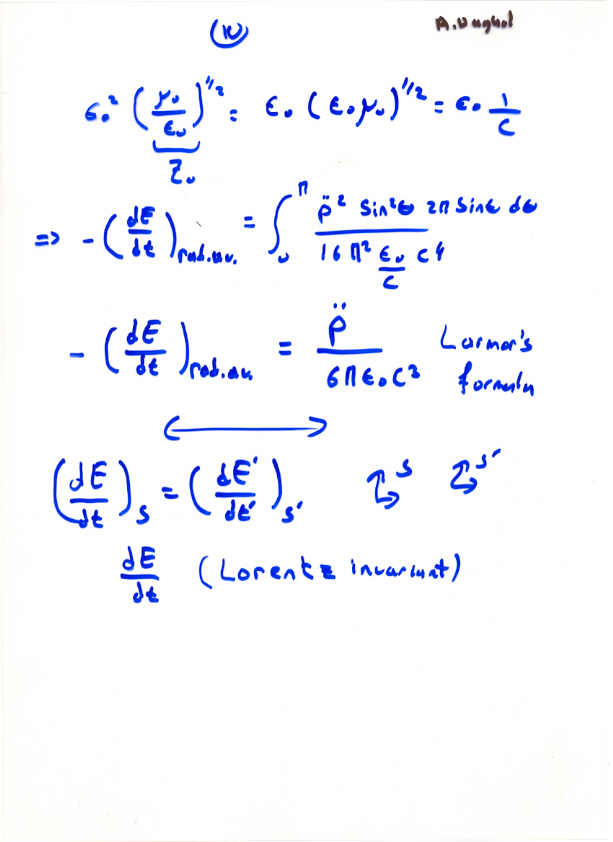 (10)
ε₀² (μ₀/ε₀)^1/2 = ε₀ (ε₀μ₀)^1/2 = ε₀ 1/c
Z₀
=> -(dE/dt)rad.av. = ∫₀^π p̈² sin²θ 2π sinθ dθ / 16 π² ε₀/c c⁴
-(dE/dt)rad.av. = p̈ / 6πε₀c³ Larmor's formula
(dE/dt)s = (dE'/dt')s' s s'
dE/dt (Lorentz invariant)